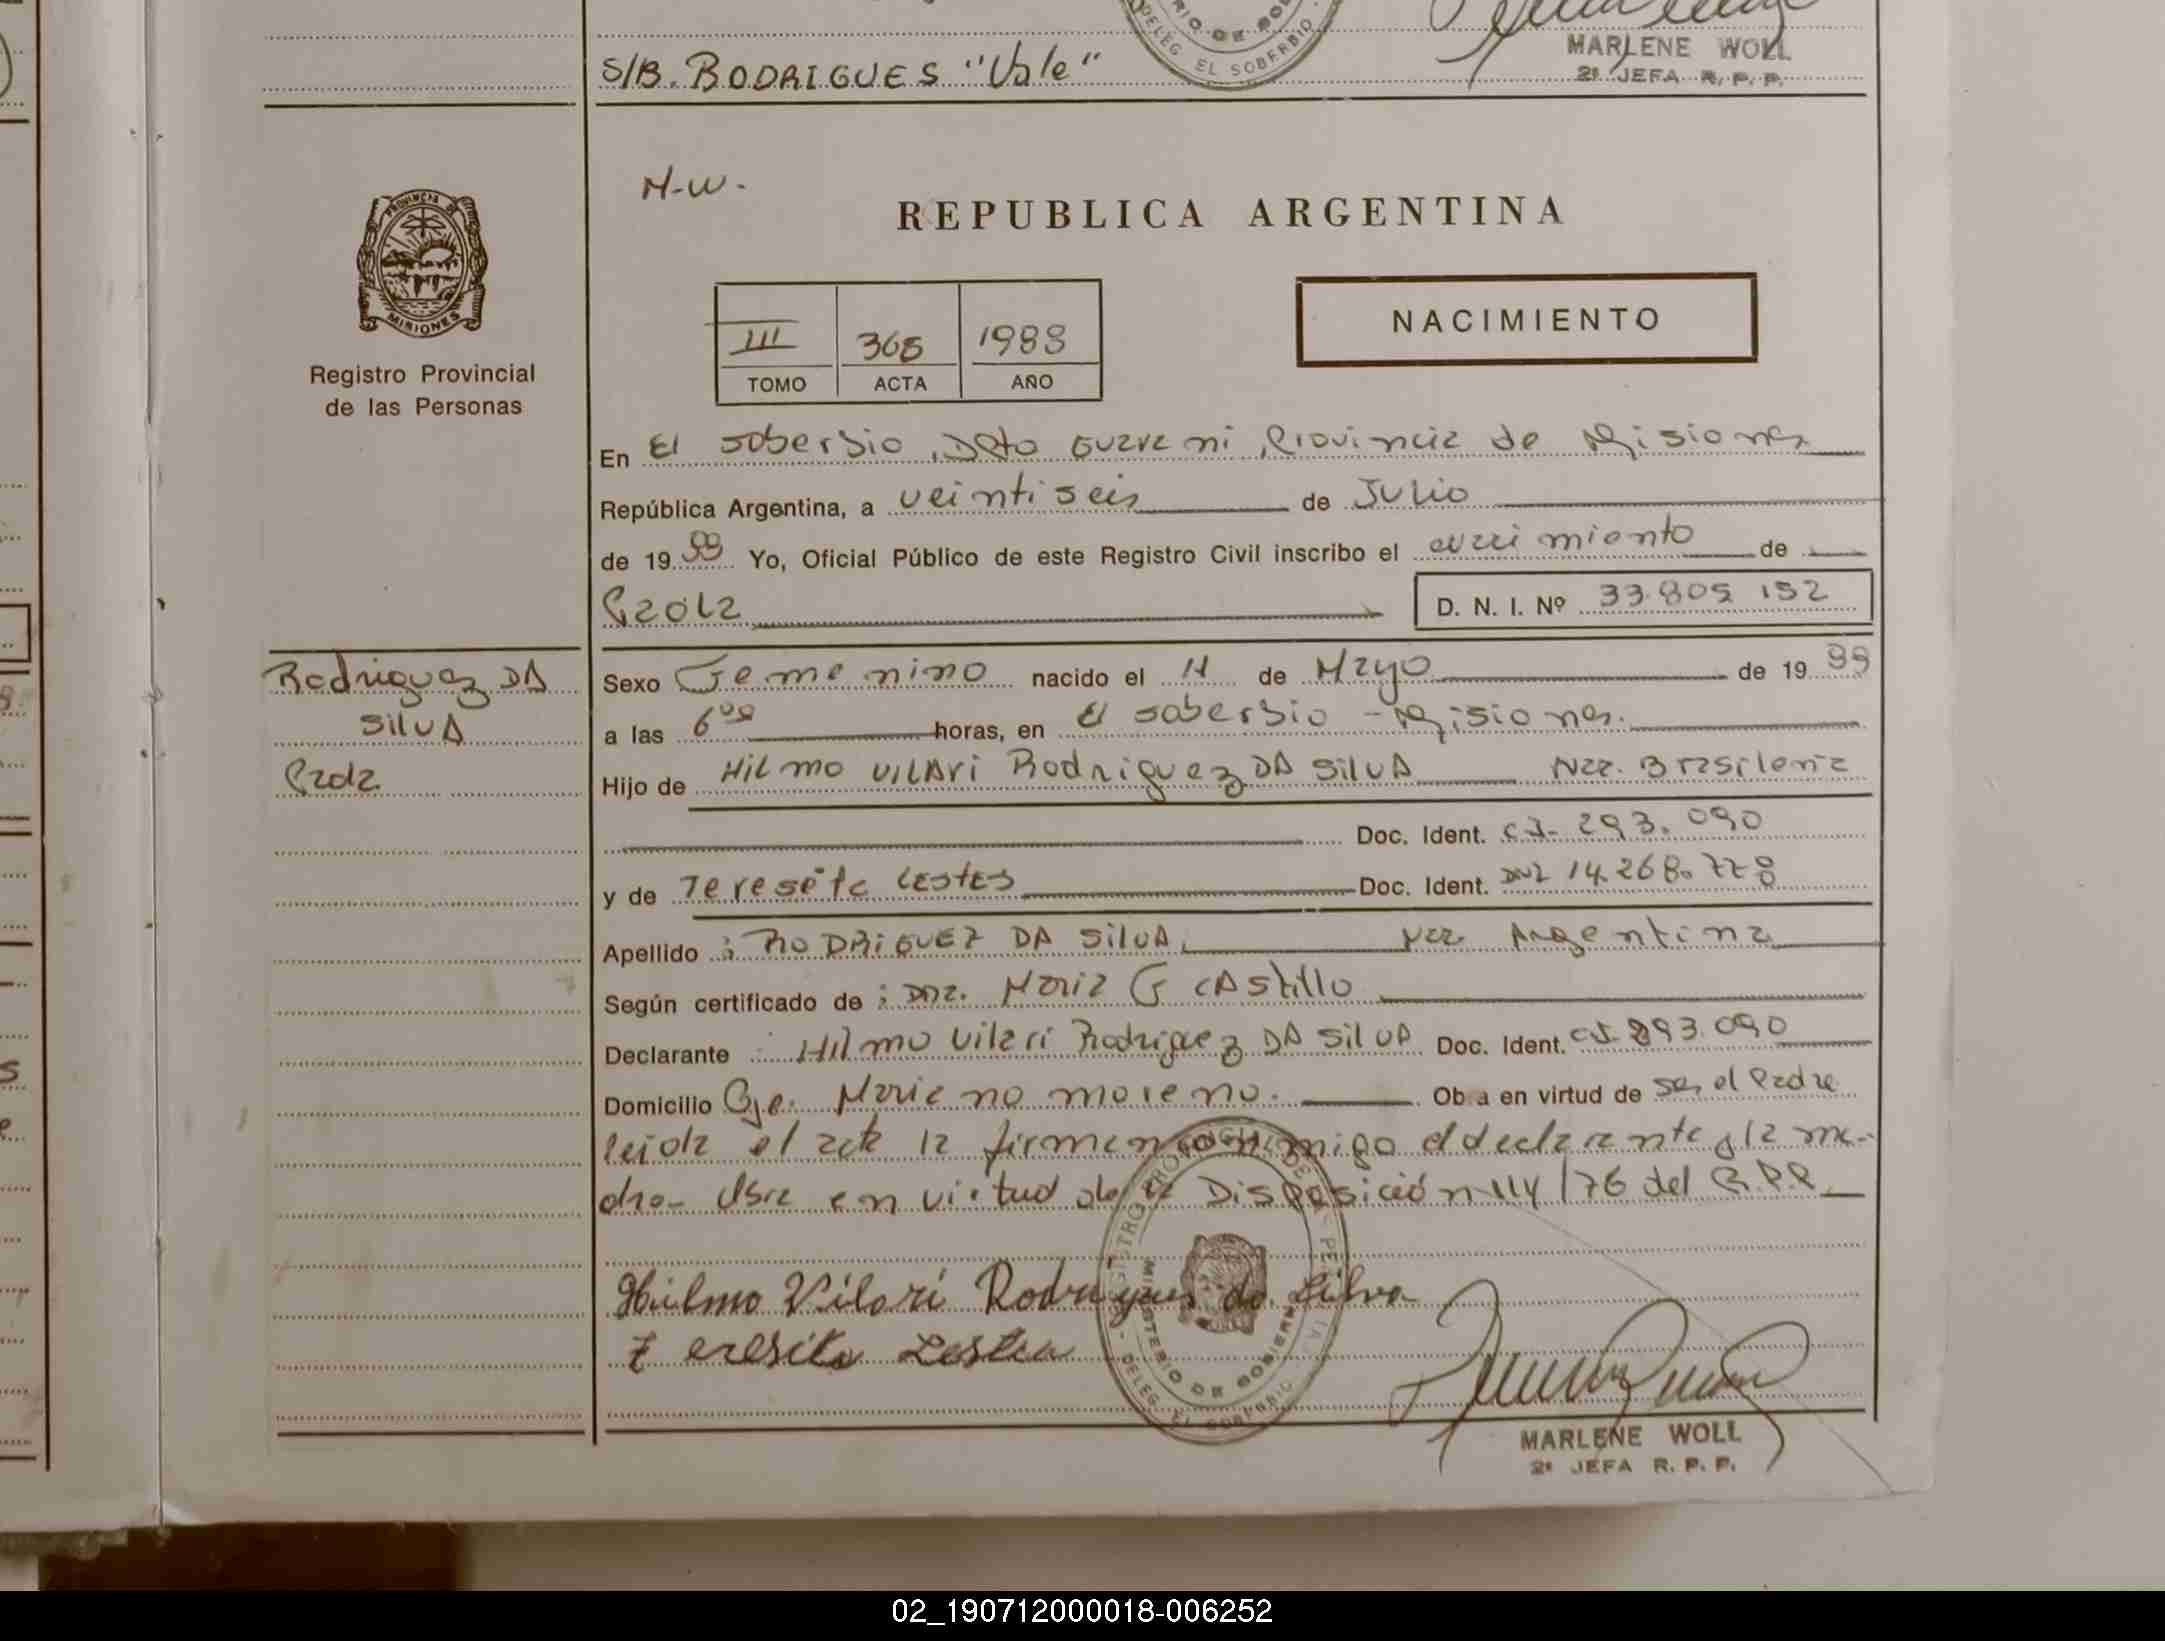 S/B. RODRIGUES "Vale"
DELEG EL SOBERBIO
MARLENE WOLL
2ª JEFA R. P. P.
M-W.
REPUBLICA ARGENTINA
PROVINCIA DE
MISIONES
Registro Provincial
de las Personas
III 365 1988
TOMO ACTA AÑO
NACIMIENTO
En El soberbio, Dpto Guarani, Provincia de Misiones
República Argentina, a veintiseis de Julio
de 1988 Yo, Oficial Público de este Registro Civil inscribo el nacimiento de
Paola D. N. I. Nº 33.805.152
Rodriguez DA
SilvA
Paola
Sexo Femenino nacido el 11 de Mayo de 1988
a las 6 horas, en El soberbio - Misiones.
Hijo de Hilmo VILARi Rodriguez DA SilVA Nac. Brasilena
Doc. Ident. CI. 293.090
y de Teresita LESTES Doc. Ident. DNI 14.268.778
Apellido : RODRiGUEZ DA SilVA, Nac. Argentina
Según certificado de : Dra. Maria G CAstillo
Declarante : Hilmo Vilari Rodriguez DA SilVA Doc. Ident. CI. 293.090
Domicilio Cje. Mariano moreno. Ob a en virtud de ser el Padre
leida el acta la firman conmigo el declarante y la ma-
dre- Obra en virtud de la Disposición 114/76 del R.P.P.
Hilmo Vilari Rodrigues da Silva
Teresita Lestes
MINISTERIO DE GOBIERNO
DELEG. EL SOBERBIO
MARLENE WOLL
2ª JEFA R. P. P.
02_190712000018-006252